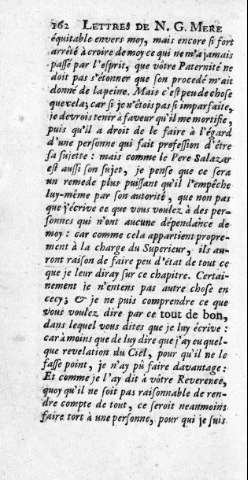 162 LETTRES DE N. G. MERE
équitable envers moy, mais encore si fort
arrêté à croire de moy ce qui ne m'a jamais
passé par l'esprit, que vôtre Paternité ne
doit pas s'étonner que son procedé m'ait
donné de la peine. Mais c'est peu de chose
que cela; car si je n'étois pas si imparfaite,
je devrois tenir à faveur qu'il me mortifie,
puis qu'il a droit de le faire à l'égard
d'une personne qui fait profession d'être
sa sujette : mais comme le Pere Salazar
est aussi son sujet, je pense que ce sera
un remede plus puissant qu'il l'empêche
luy-même par son autorité, que non pas
que j'écrive ce que vous voulez à des per-
sonnes qui n'ont aucune dépendance de
moy : car comme cela appartient propre-
ment à la charge du Superieur, ils au-
ront raison de faire peu d'état de tout ce
que je leur diray sur ce chapitre. Certai-
nement je n'entens pas autre chose en
cecy; & je ne puis comprendre ce que
vous voulez dire par ce tout de bon,
dans lequel vous dites que je luy écrive :
car à moins que de luy dire que j'ay eu quel-
que revelation du Ciel, pour qu'il ne le
fasse point, je n'ay pû faire davantage :
Et comme je l'ay dit à vôtre Reverence,
quoy qu'il ne soit pas raisonnable de ren-
dre compte de tout, ce seroit neanmoins
faire tort à une personne, pour qui je suis